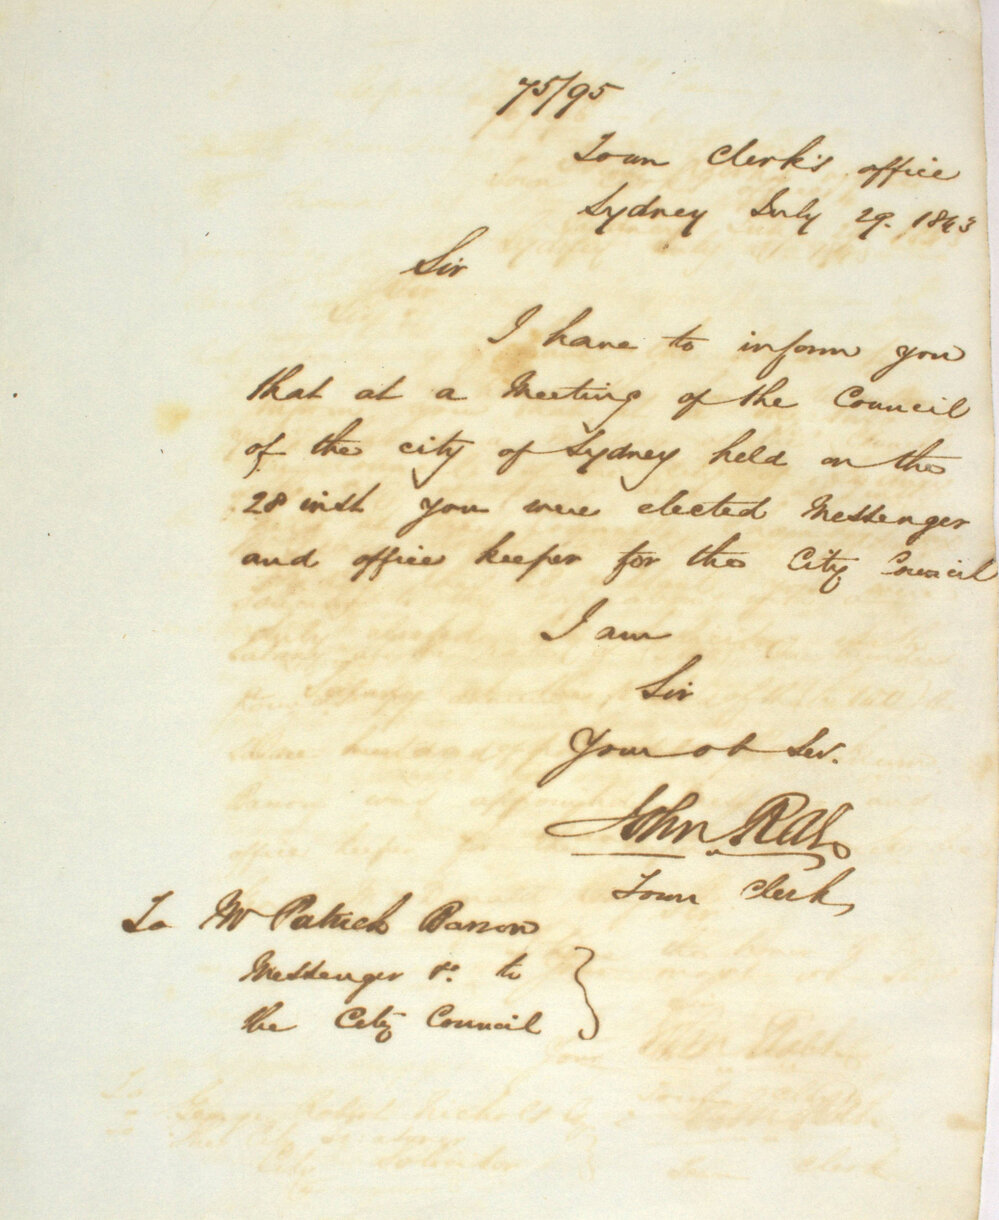 75/95
Town Clerk's office
Sydney July 29. 1843
Sir
I have to inform you
that at a Meeting of the Council
of the city of Sydney held on the
28 inst you were elected Messenger
and office keeper for the City Council
I am
Sir
Your ob Ser.
John Rae
Town Clerk
To Mr Patrick Barron
Messenger &c. to
the City Council